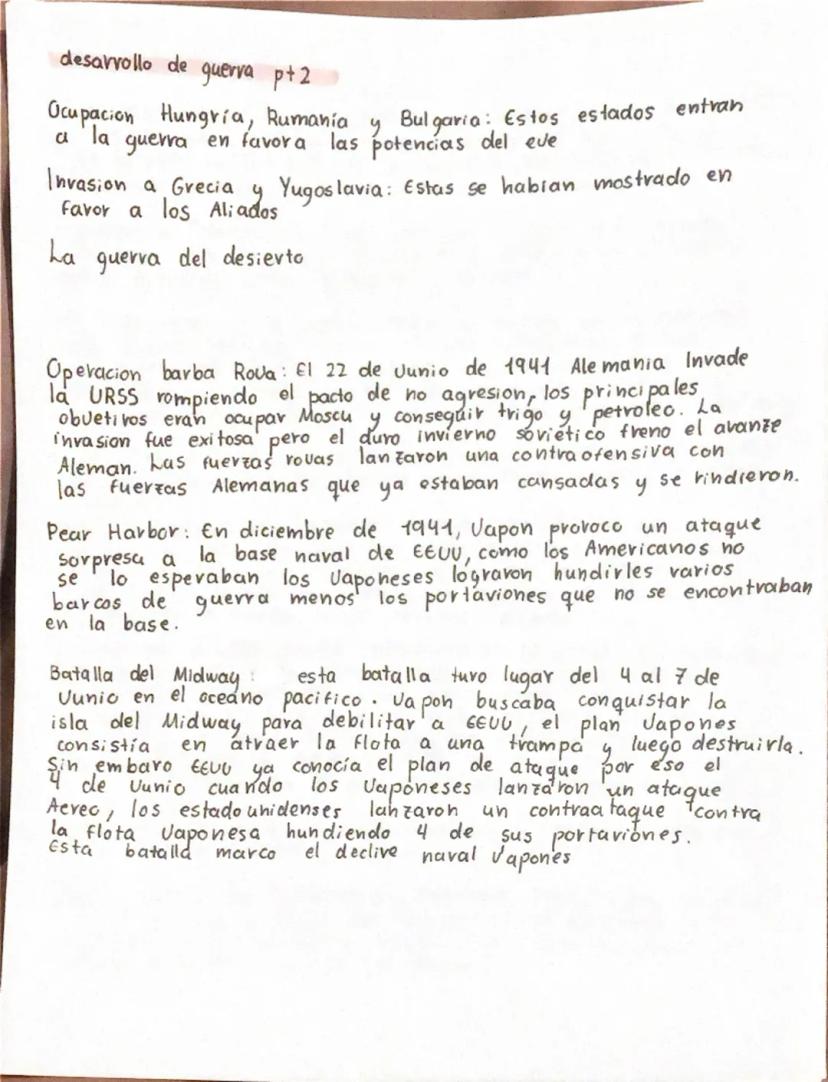 desarrollo de guerra pt2
Ocupacion Hungría, Rumanía y Bulgaria: Estos estados entran
a la guerra en favor a las potencias del eje
Invasion a Grecia y Yugoslavia: Estas se habían mostrado en
favor a los Aliados
La guerra del desierto
Operacion barba Roja: El 22 de Junio de 1941 Alemania Invade
la URSS rompiendo el pacto de no agresion, los principales
objetivos eran ocupar Moscu y conseguir trigo y petroleo. La
invasion fue exitosa pero el duro invierno sovietico freno el avance
Aleman. Las fuerzas rojas lanzaron una contraofensiva con
las fuerzas Alemanas que ya estaban cansadas y se rindieron.
Pear Harbor: En diciembre de 1941, Japon provoco un ataque
sorpresa a la base naval de EEUU, como los Americanos no
se lo esperaban los Japoneses lograron hundirles varios
barcos de guerra menos los portaviones que no se encontraban
en la base.
Batalla del Midway: esta batalla tuvo lugar del 4 al 7 de
Junio en el oceano pacifico. Japon buscaba conquistar la
isla del Midway para debilitar a EEUU, el plan Japones
consistía en atraer la flota a una trampa y luego destruirla.
Sin embaro EEUU ya conocía el plan de ataque por eso el
4 de Junio cuando los Japoneses lanzaron un ataque
Aereo, los estadounidenses lanzaron un contraataque contra
la flota Japonesa hundiendo 4 de sus portaviones.
Esta batalla marco el declive naval Japones